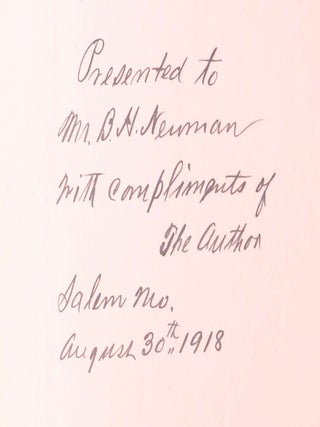 Presented to
Mr. B. H. Newman
With compliments of
The Author
Salem Mo.
August 30th, 1918